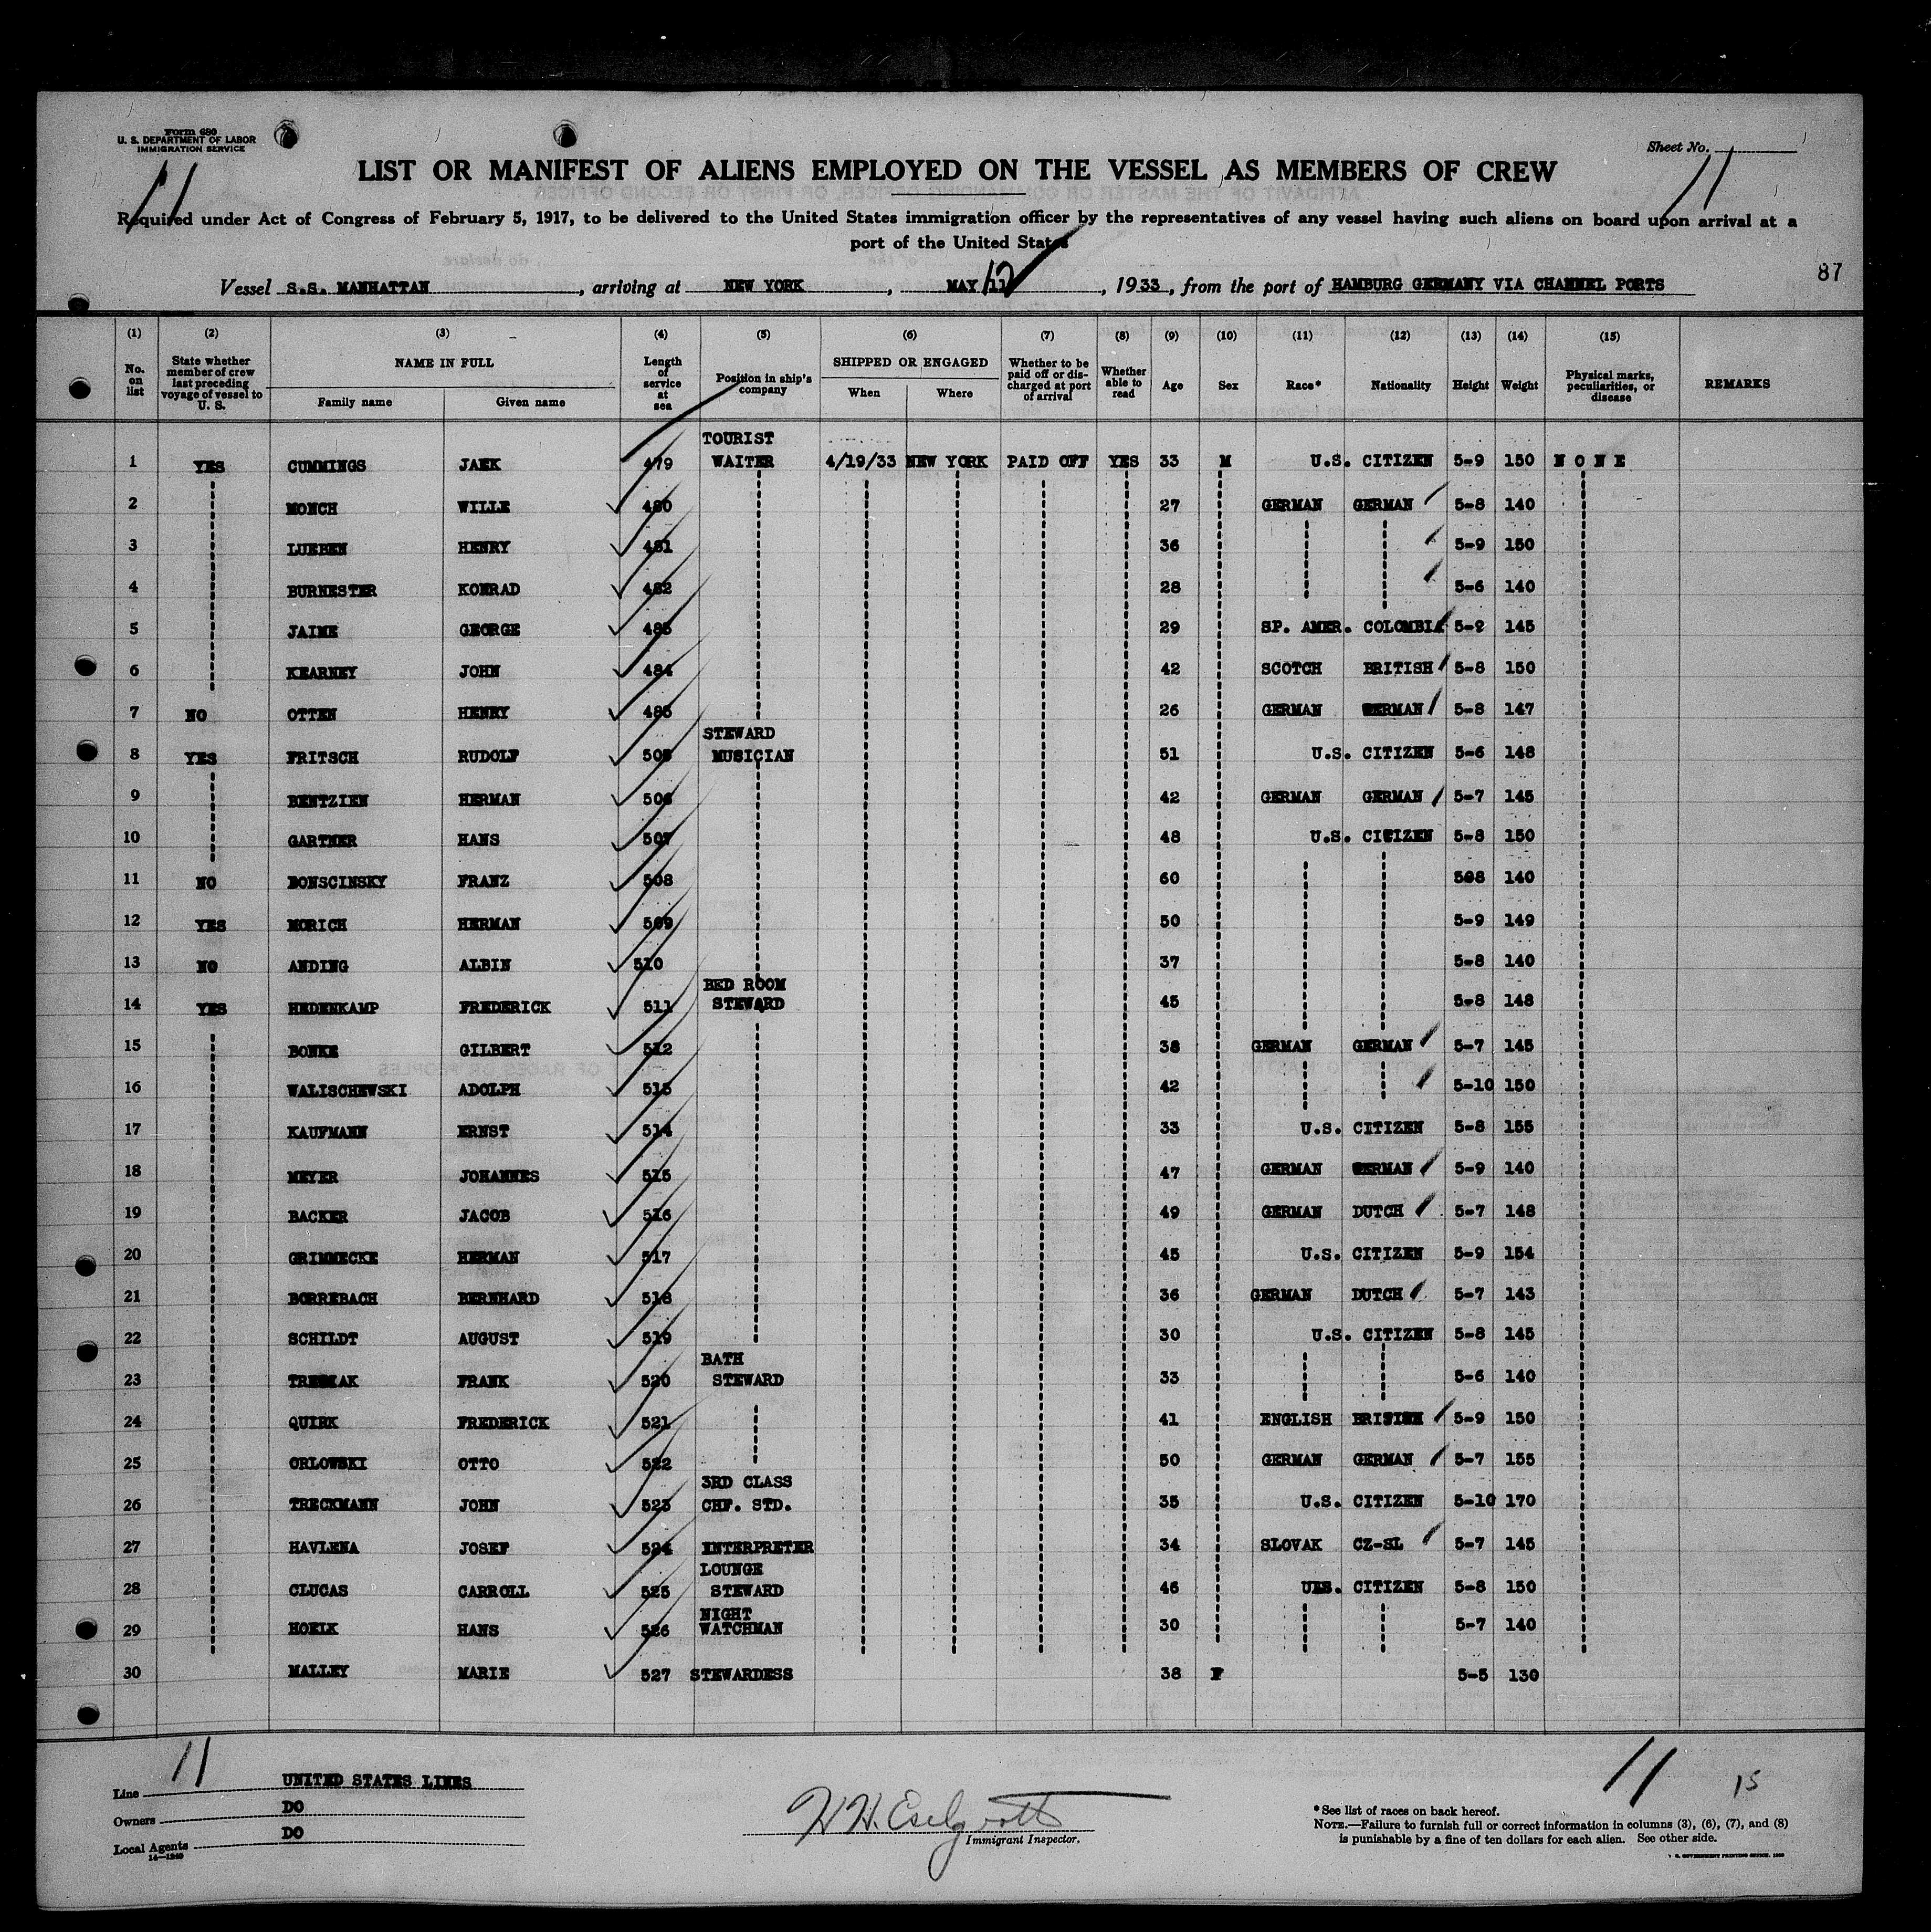 Form 680
U. S. DEPARTMENT OF LABOR
IMMIGRATION SERVICE
Sheet No.
11
11
LIST OR MANIFEST OF ALIENS EMPLOYED ON THE VESSEL AS MEMBERS OF CREW
Required under Act of Congress of February 5, 1917, to be delivered to the United States immigration officer by the representatives of any vessel having such aliens on board upon arrival at a
port of the United States
Vessel S.S. MANHATTAN, arriving at NEW YORK, MAY 11 12, 1933, from the port of HAMBURG GERMANY VIA CHANNEL PORTS
87
(1) (2) (3) (4) (5) (6) (7) (8) (9) (10) (11) (12) (13) (14) (15)
No. on list State whether member of crew last preceding voyage of vessel to U. S. NAME IN FULL Family name Given name Length of service at sea Position in ship's company SHIPPED OR ENGAGED When Where Whether to be paid off or discharged at port of arrival Whether able to read Age Sex Race* Nationality Height Weight Physical marks, peculiarities, or disease REMARKS
1 YES CUMMINGS JAEK 479 TOURIST WAITER 4/19/33 NEW YORK PAID OFF YES 33 M U.S. CITIZEN 5-9 150 NONE
2 MONCH WILLE 480 27 GERMAN GERMAN 5-8 140
3 LUEBEN HENRY 481 36 5-9 150
4 BURNESTER KONRAD 482 28 5-6 140
5 JAIME GEORGE 483 29 SP. AMER. COLOMBIA 5-2 145
6 KEARNEY JOHN 484 42 SCOTCH BRITISH 5-8 150
7 NO OTTEN HENRY 485 26 GERMAN GERMAN 5-8 147
8 YES FRITSCH RUDOLF 505 STEWARD MUSICIAN 51 U.S. CITIZEN 5-6 148
9 BENTZIEN HERMAN 506 42 GERMAN GERMAN 5-7 145
10 GARTNER HANS 507 48 U.S. CITIZEN 5-8 150
11 NO BONSCINSKY FRANZ 508 60 508 140
12 YES MORICH HERMAN 509 50 5-9 149
13 NO ANDING ALBIN 510 37 5-8 140
14 YES HEDENKAMP FREDERICK 511 BED ROOM STEWARD 45 5-8 148
15 BONKE GILBERT 512 38 GERMAN GERMAN 5-7 145
16 WALISCHEWSKI ADOLPH 513 42 5-10 150
17 KAUFMANN ERNST 514 33 U.S. CITIZEN 5-8 155
18 MEYER JOHANNES 515 47 GERMAN GERMAN 5-9 140
19 BACKER JACOB 516 49 GERMAN DUTCH 5-7 148
20 GRIMMECKE HERMAN 517 45 U.S. CITIZEN 5-9 154
21 BORREBACH BERNHARD 518 36 GERMAN DUTCH 5-7 143
22 SCHILDT AUGUST 519 30 U.S. CITIZEN 5-8 145
23 FRANK 520 BATH STEWARD 33 5-6 140
24 QUIRK FREDERICK 521 41 ENGLISH BRITISH 5-9 150
25 ORLOWSKI OTTO 522 50 GERMAN GERMAN 5-7 155
26 TRECKMANN JOHN 523 3RD CLASS CHF. STD. 35 U.S. CITIZEN 5-10 170
27 HAVLENA JOSEF 524 INTERPRETER 34 SLOVAK CZ-SL 5-7 145
28 CLUCAS CARROLL 525 LOUNGE STEWARD 46 CITIZEN 5-8 150
29 HOELK HANS 526 NIGHT WATCHMAN 30 5-7 140
30 MALLEY MARIE 527 STEWARDESS 38 F 5-5 130
11
11
15
Line UNITED STATES LINES
Owners DO
Local Agents DO
14-1240
Immigrant Inspector.
*See list of races on back hereof.
NOTE.—Failure to furnish full or correct information in columns (3), (6), (7), and (8)
is punishable by a fine of ten dollars for each alien. See other side.